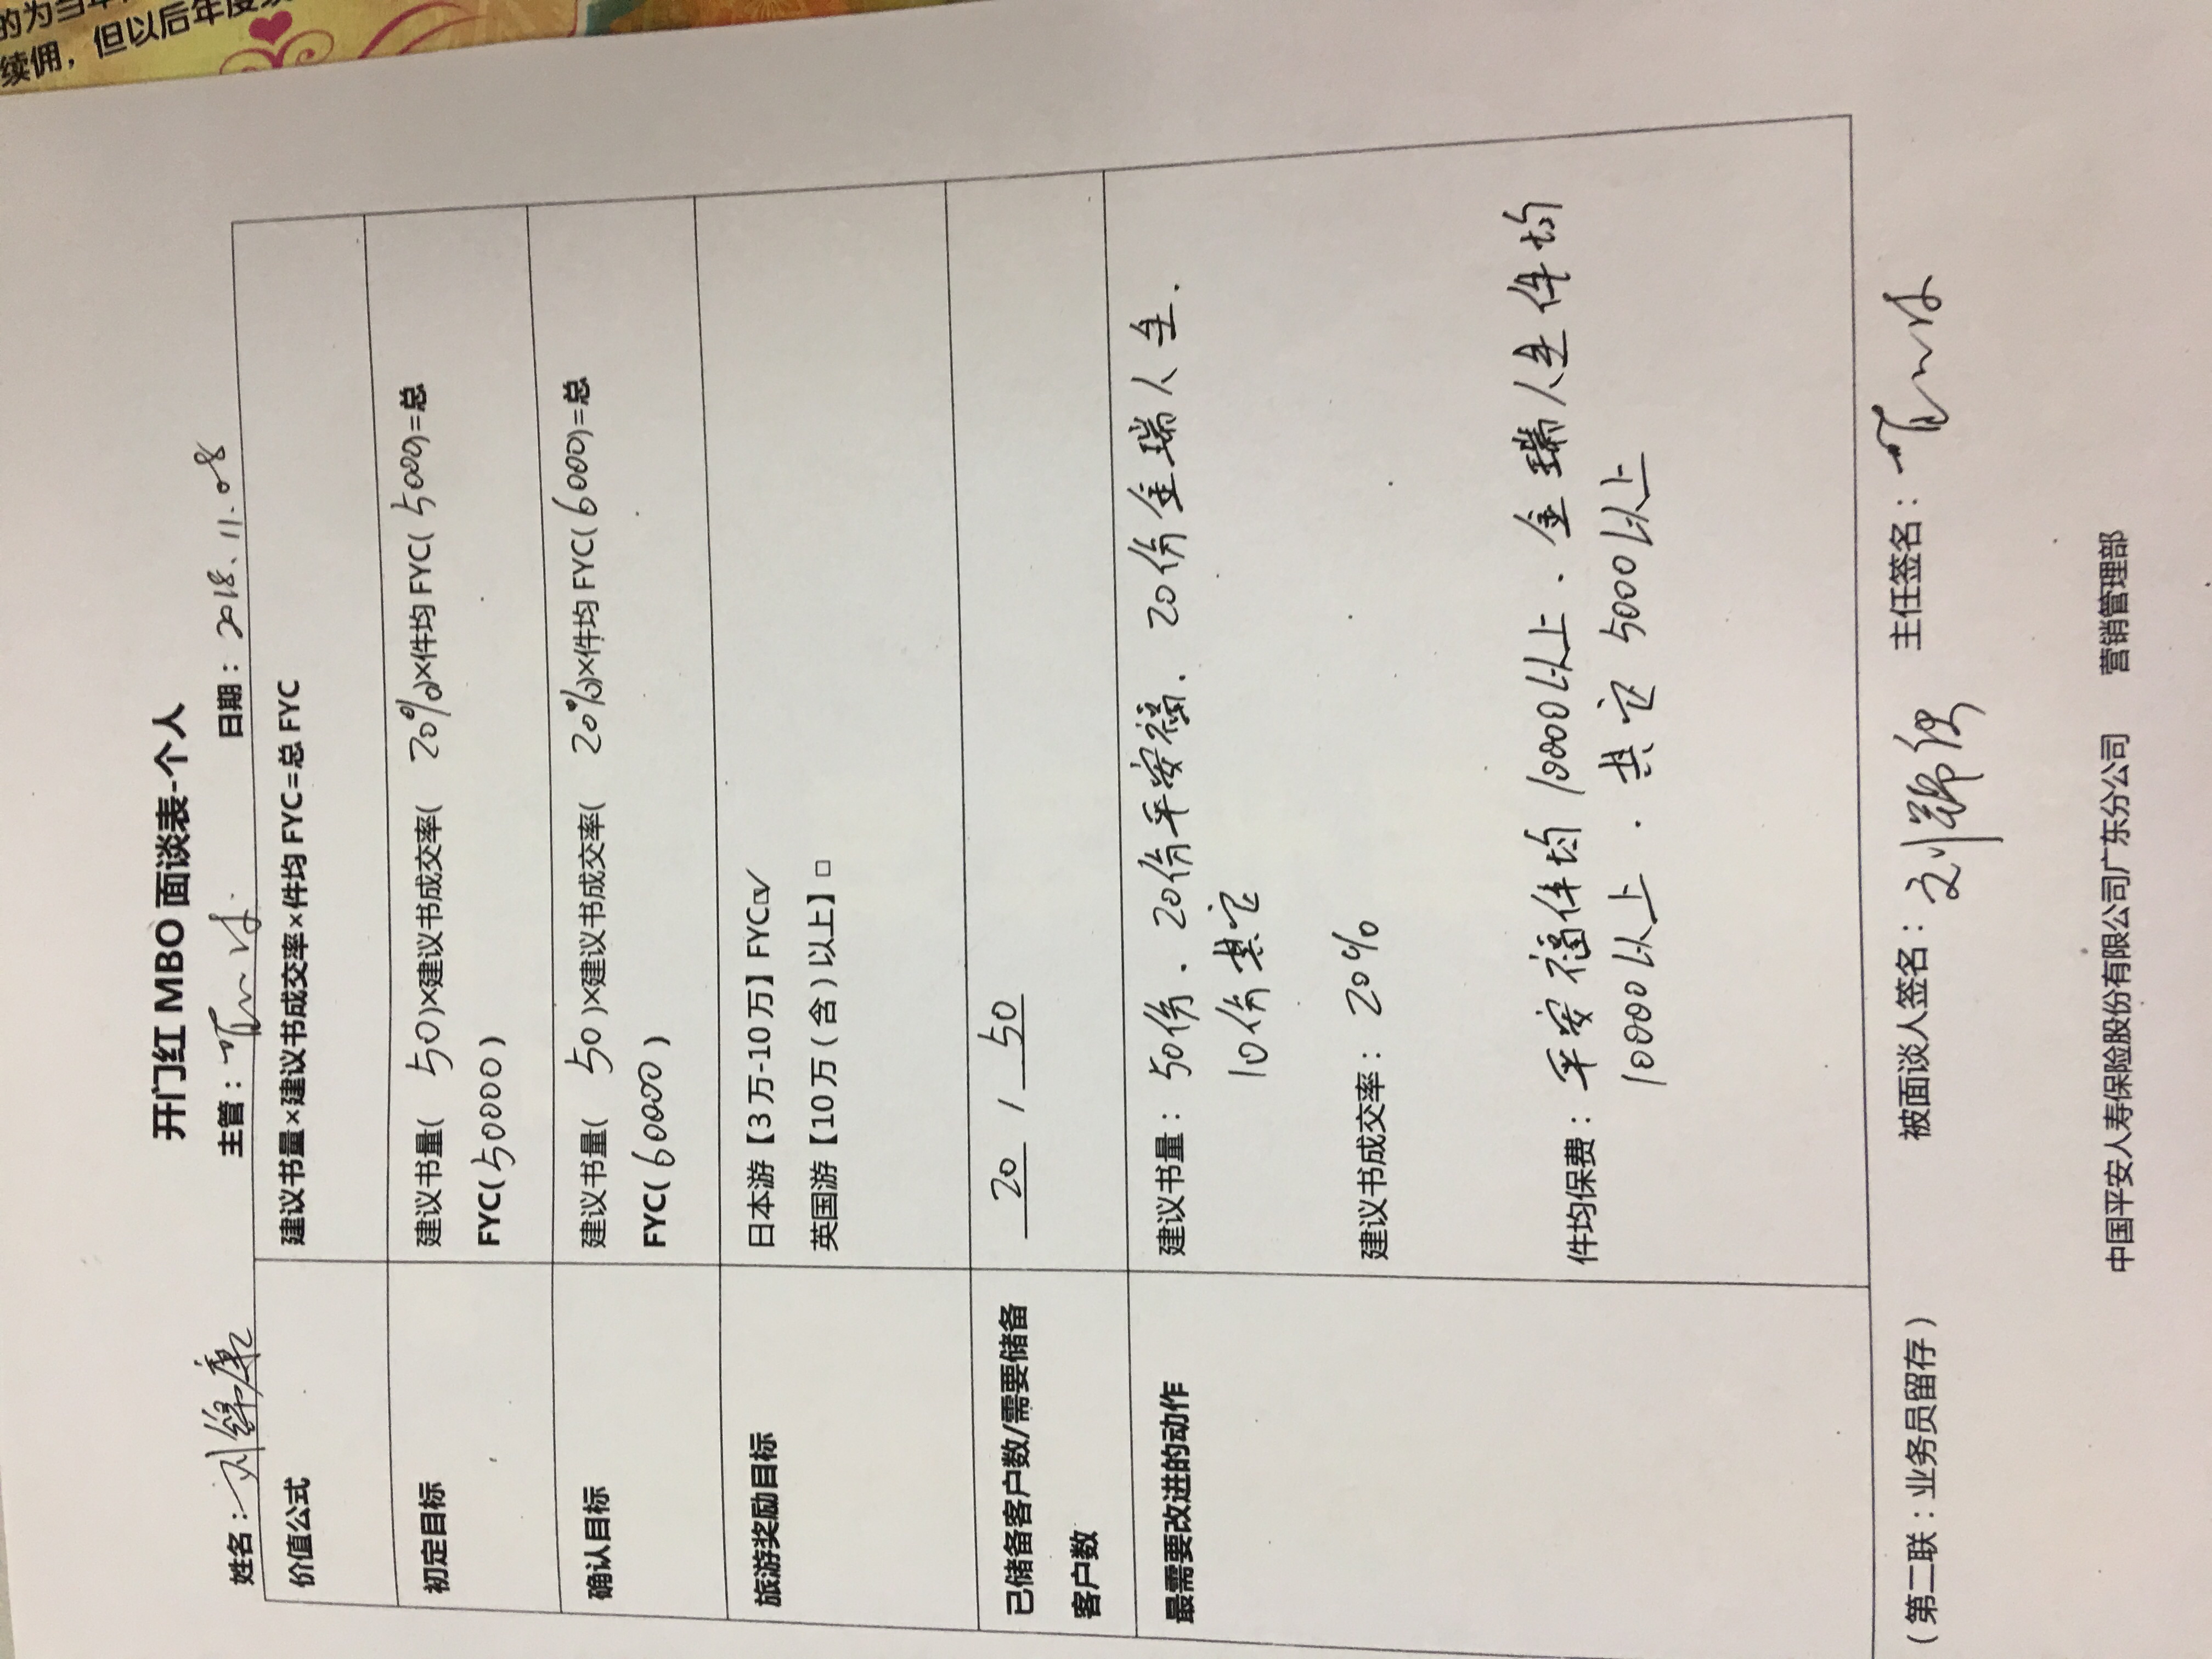 的为当年
续佣，但以后年度
开门红 MBO 面谈表-个人
姓名： 主管： 日期：2018.11.08
价值公式 建议书量×建议书成交率×件均 FYC=总 FYC
初定目标 建议书量( 50)×建议书成交率( 20%)×件均 FYC( 5000)=总
FYC(50000)
确认目标 建议书量( 50)×建议书成交率( 20%)×件均 FYC(6000)=总
FYC(60000)
旅游奖励目标 日本游【3 万-10 万】FYC☑
英国游【10 万（含）以上】□
已储备客户数/需要储备
客户数
20 / 50
最需要改进的动作
建议书量：50份. 20份平安福. 20份金瑞人生.
10份其它
建议书成交率：20%
件均保费：平安福件均10000以上. 金瑞人生件均
10000以上. 其它 5000以上
（第二联：业务员留存） 被面谈人签名： 主任签名：
中国平安人寿保险股份有限公司广东分公司 营销管理部